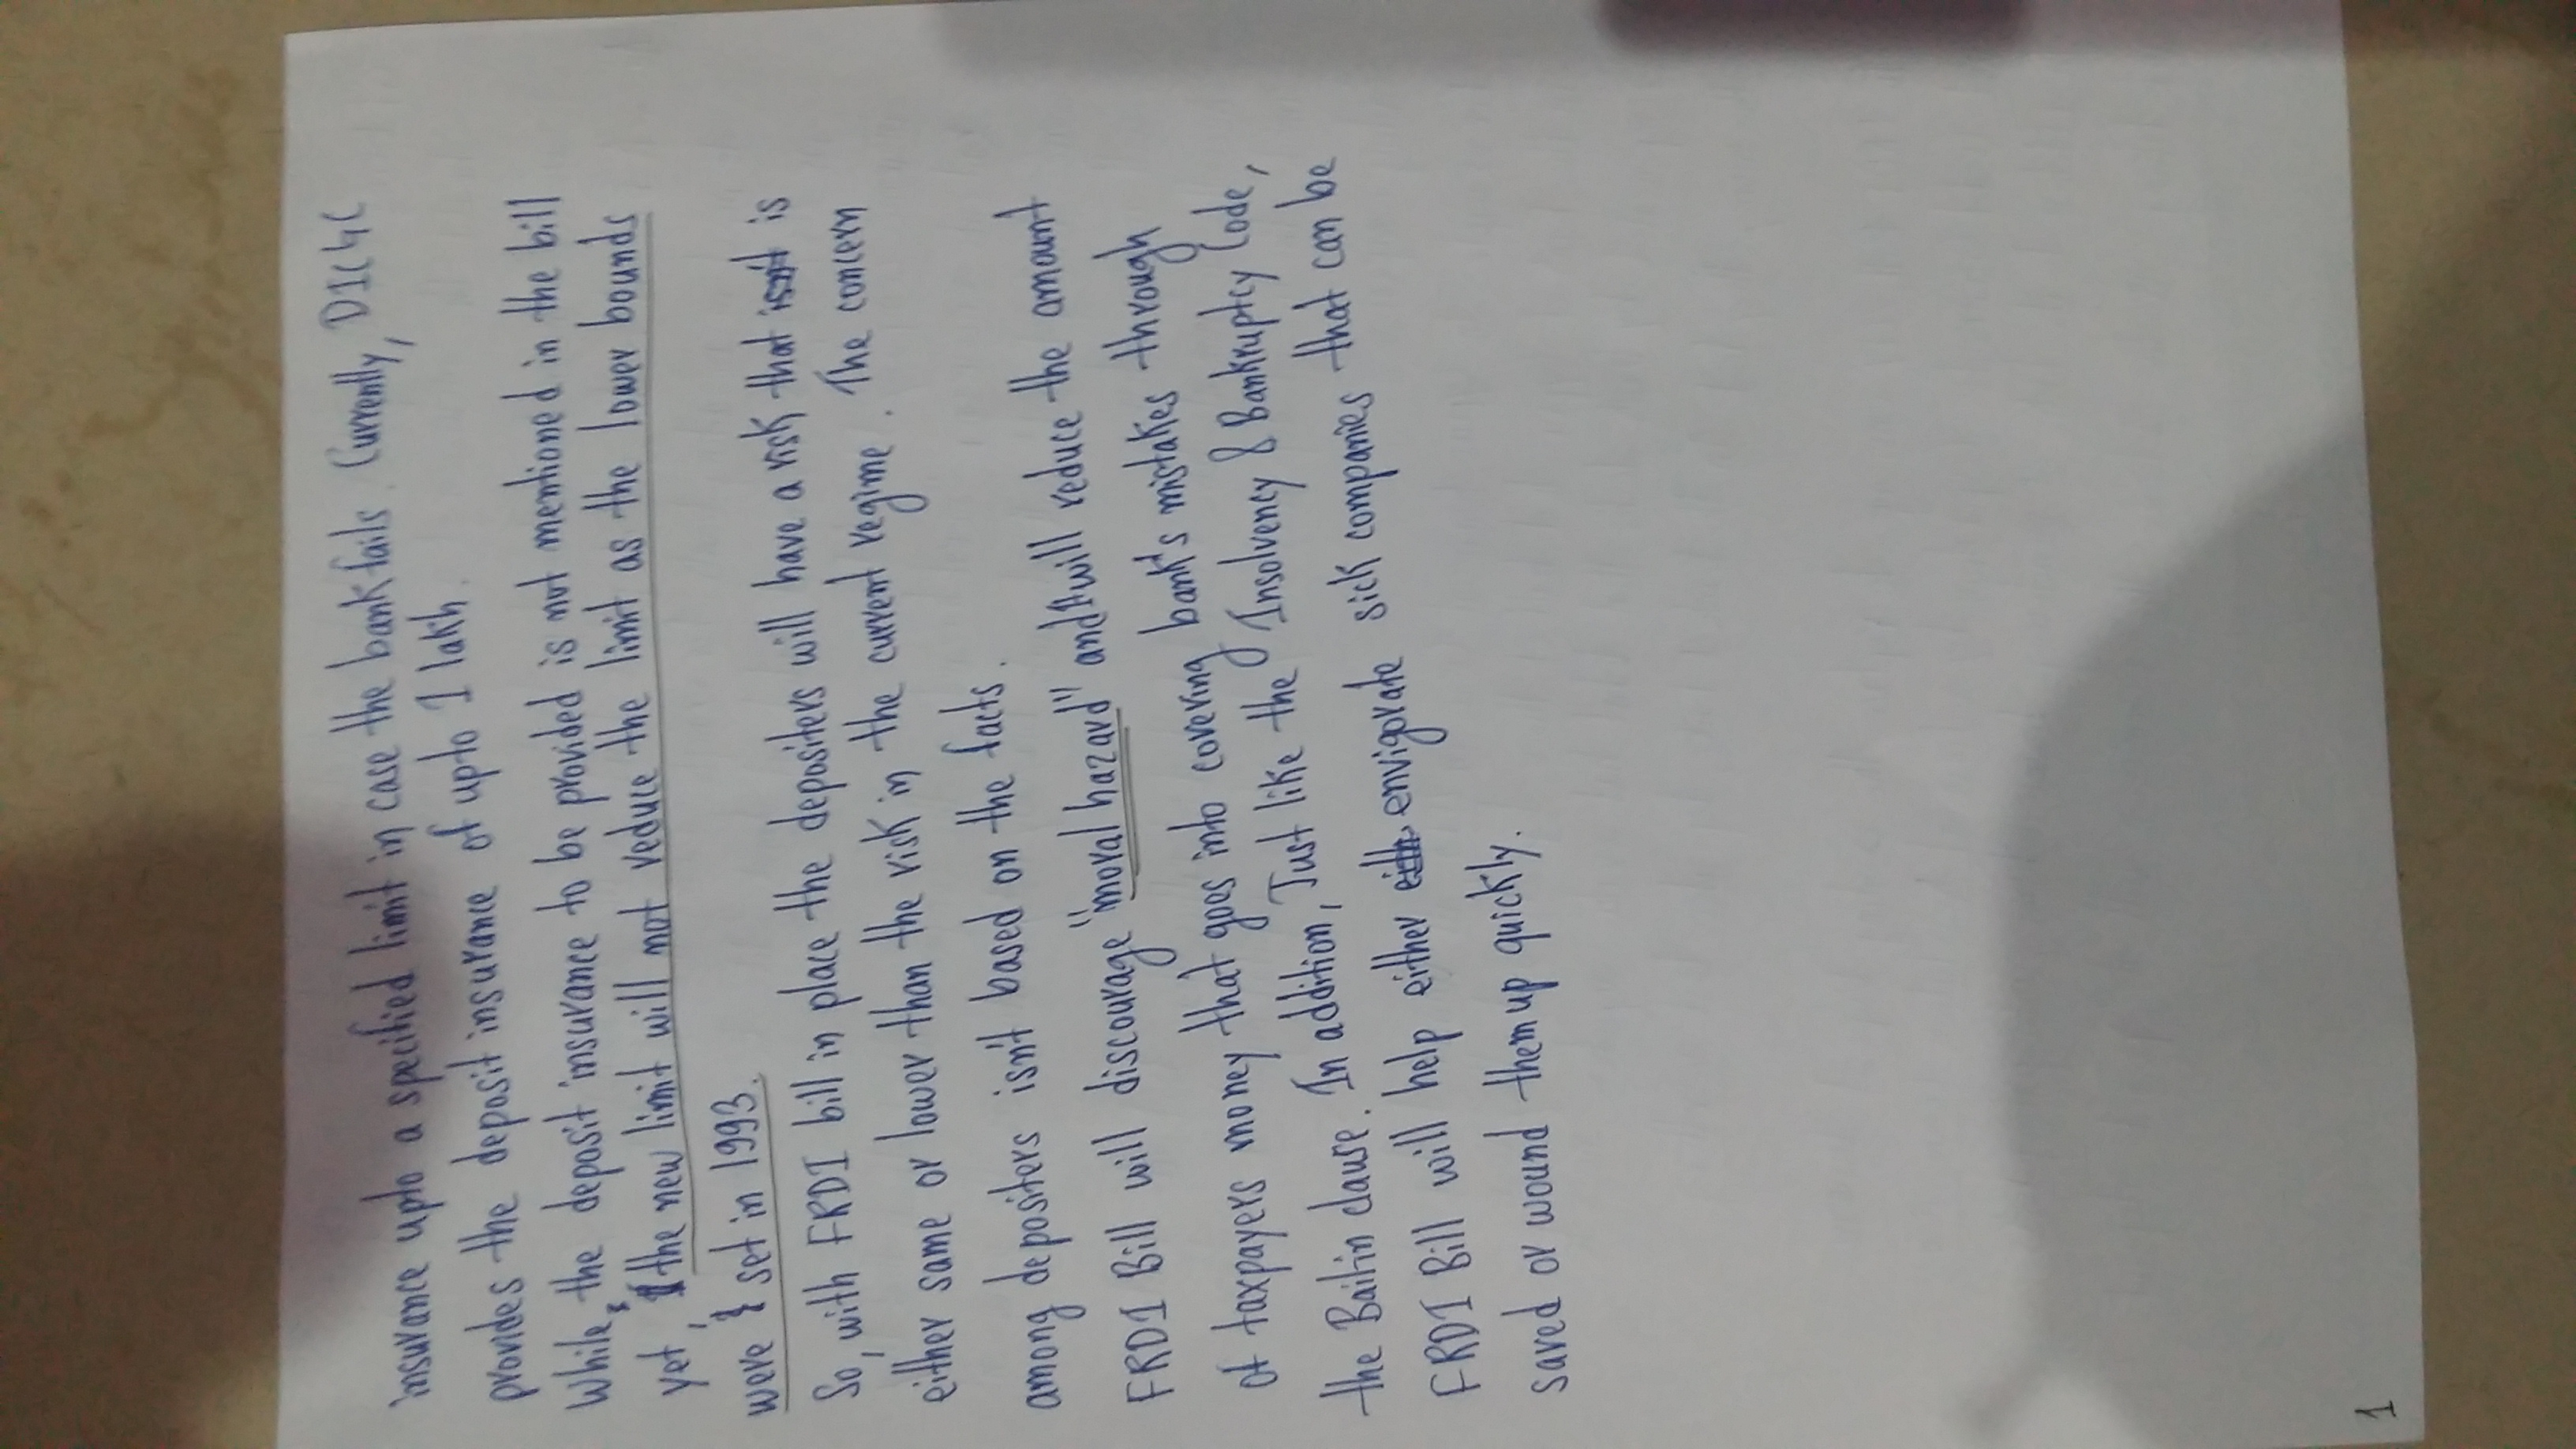 insurance upto a specified limit in case the bank fails. Currently, DICGC
provides the deposit insurance of upto 1 lakh.
While, the deposit insurance to be provided is not mentioned in the bill
yet, the new limit will not reduce the limit as the lower bounds
were set in 1993.
So, with FRDI bill in place the depositers will have a risk that is
either same or lower than the risk in the current regime. The concern
among depositers isn't based on the facts.
FRDI Bill will discourage "moral hazard" and will reduce the amount
of taxpayers money that goes into covering bank's mistakes through
the Bailin clause. In addition, Just like the Insolvency & Bankruptcy Code,
FRDI Bill will help either envigorate sick companies that can be
saved or wound them up quickly.
1